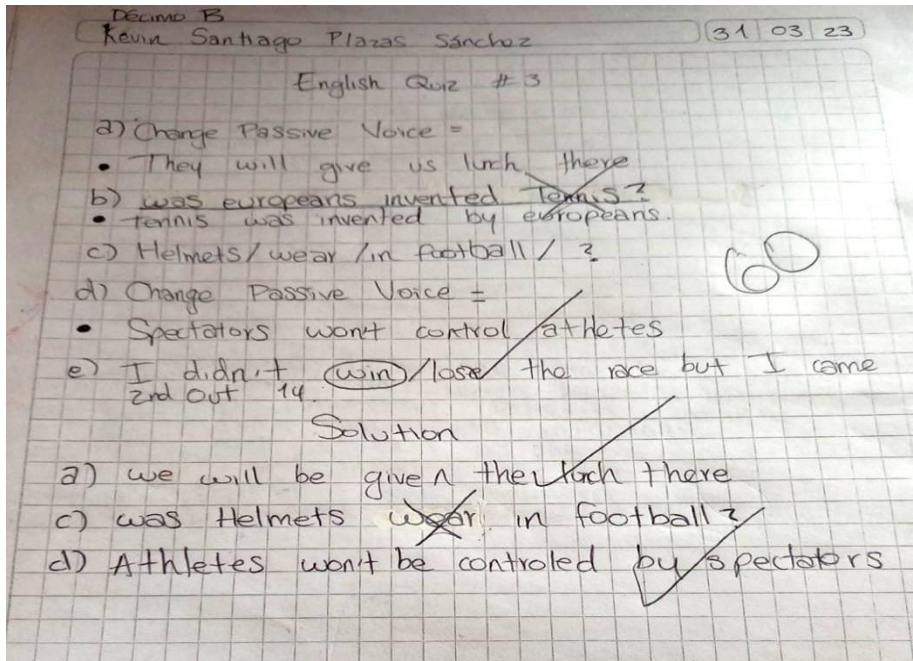 Décimo B
Kevin Santiago Plazas Sánchez 31 03 23
English Quiz #3
a) Change Passive Voice =
• They will give us lunch there
b) was europeans invented Tennis?
• Tennis was invented by europeans.
c) Helmets/wear/in football/?
60
d) Change Passive Voice =
• Spectators won't control athletes
e) I didn't win/lose the race but I came
2nd out 14.
Solution
a) we will be given the luch there
c) was Helmets wear in football?
d) Athletes won't be controled by spectators